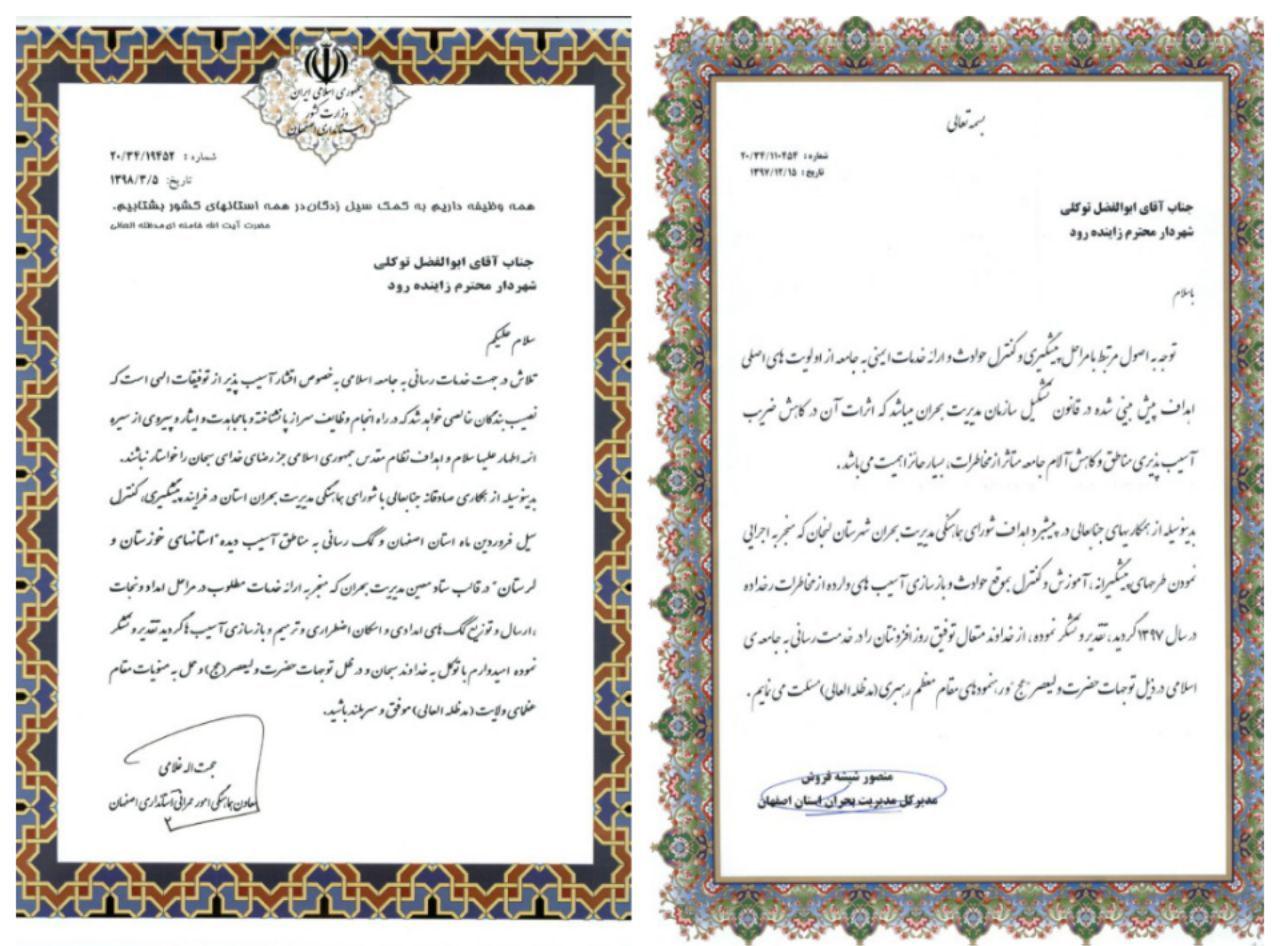 جمهوری اسلامی ایران
وزارت کشور
استانداری اصفهان
شماره : ۲۰/۳۴/۱۹۴۵۲
تاریخ: ۱۳۹۸/۳/۵
همه وظیفه داریم به کمک سیل زدگان در همه استانهای کشور بشتابیم.
حضرت آیت الله خامنه ای مدظله العالی
جناب آقای ابوالفضل توکلی
شهردار محترم زاینده رود
سلام علیکم
تلاش در جهت خدمات رسانی به جامعه اسلامی به خصوص اقشار آسیب پذیر از توفیقات الهی است که
نصیب بندگان خالصی خواهد شد که در راه انجام وظایف سر از پا نشناخته و با مجاهدت و ایثار و پیروی از سیره
ائمه اطهار علیها سلام و اهداف نظام مقدس جمهوری اسلامی جز رضای خدای سبحان را خواستار نباشند.
بدینوسیله از همکاری صادقانه جنابعالی با شورای هماهنگی مدیریت بحران استان در فرایند پیشگیری، کنترل
سیل فروردین ماه استان اصفهان و کمک رسانی به مناطق آسیب دیده "استانهای خوزستان و
لرستان" در قالب ستاد معین مدیریت بحران که منجر به ارائه خدمات مطلوب در مراحل امداد و نجات
، ارسال و توزیع کمک های امدادی و اسکان اضطراری و ترمیم و بازسازی آسیب ها گردید تقدیر و تشکر
نموده امیدوارم با توکل به خداوند سبحان و در ظل توجهات حضرت ولیعصر (عج) و عمل به منویات مقام
عظمای ولایت (مدظله العالی) موفق و سربلند باشید.
حجت اله غلامی
معاون هماهنگی امور عمرانی استانداری اصفهان
بسمه تعالی
شماره : ۲۰/۳۴/۱۱۰۴۵۴
تاریخ : ۱۳۹۷/۱۲/۱۵
جناب آقای ابوالفضل توکلی
شهردار محترم زاینده رود
باسلام
توجه به اصول مرتبط با مراحل پیشگیری و کنترل حوادث و ارائه خدمات ایمنی به جامعه از اولویت های اصلی
اهداف پیش بینی شده در قانون تشکیل سازمان مدیریت بحران میباشد که اثرات آن در کاهش ضریب
آسیب پذیری مناطق و کاهش آلام جامعه متأثر از مخاطرات، بسیار حائز اهمیت می باشد.
بدینوسیله از همکاریهای جنابعالی در پیشبرد اهداف شورای هماهنگی مدیریت بحران شهرستان لنجان که منجر به اجرائی
نمودن طرحهای پیشگیرانه، آموزش و کنترل بموقع حوادث و بازسازی آسیب های وارده از مخاطرات رخداده
در سال ۱۳۹۷ گردید، تقدیر و تشکر نموده، از خداوند متعال توفیق روز افزونتان را در خدمت رسانی به جامعه ی
اسلامی در ذیل توجهات حضرت ولیعصر "عج" و رهنمودهای مقام معظم رهبری (مدظله العالی) مسئلت می نمایم.
منصور شیشه فروش
مدیرکل مدیریت بحران استان اصفهان